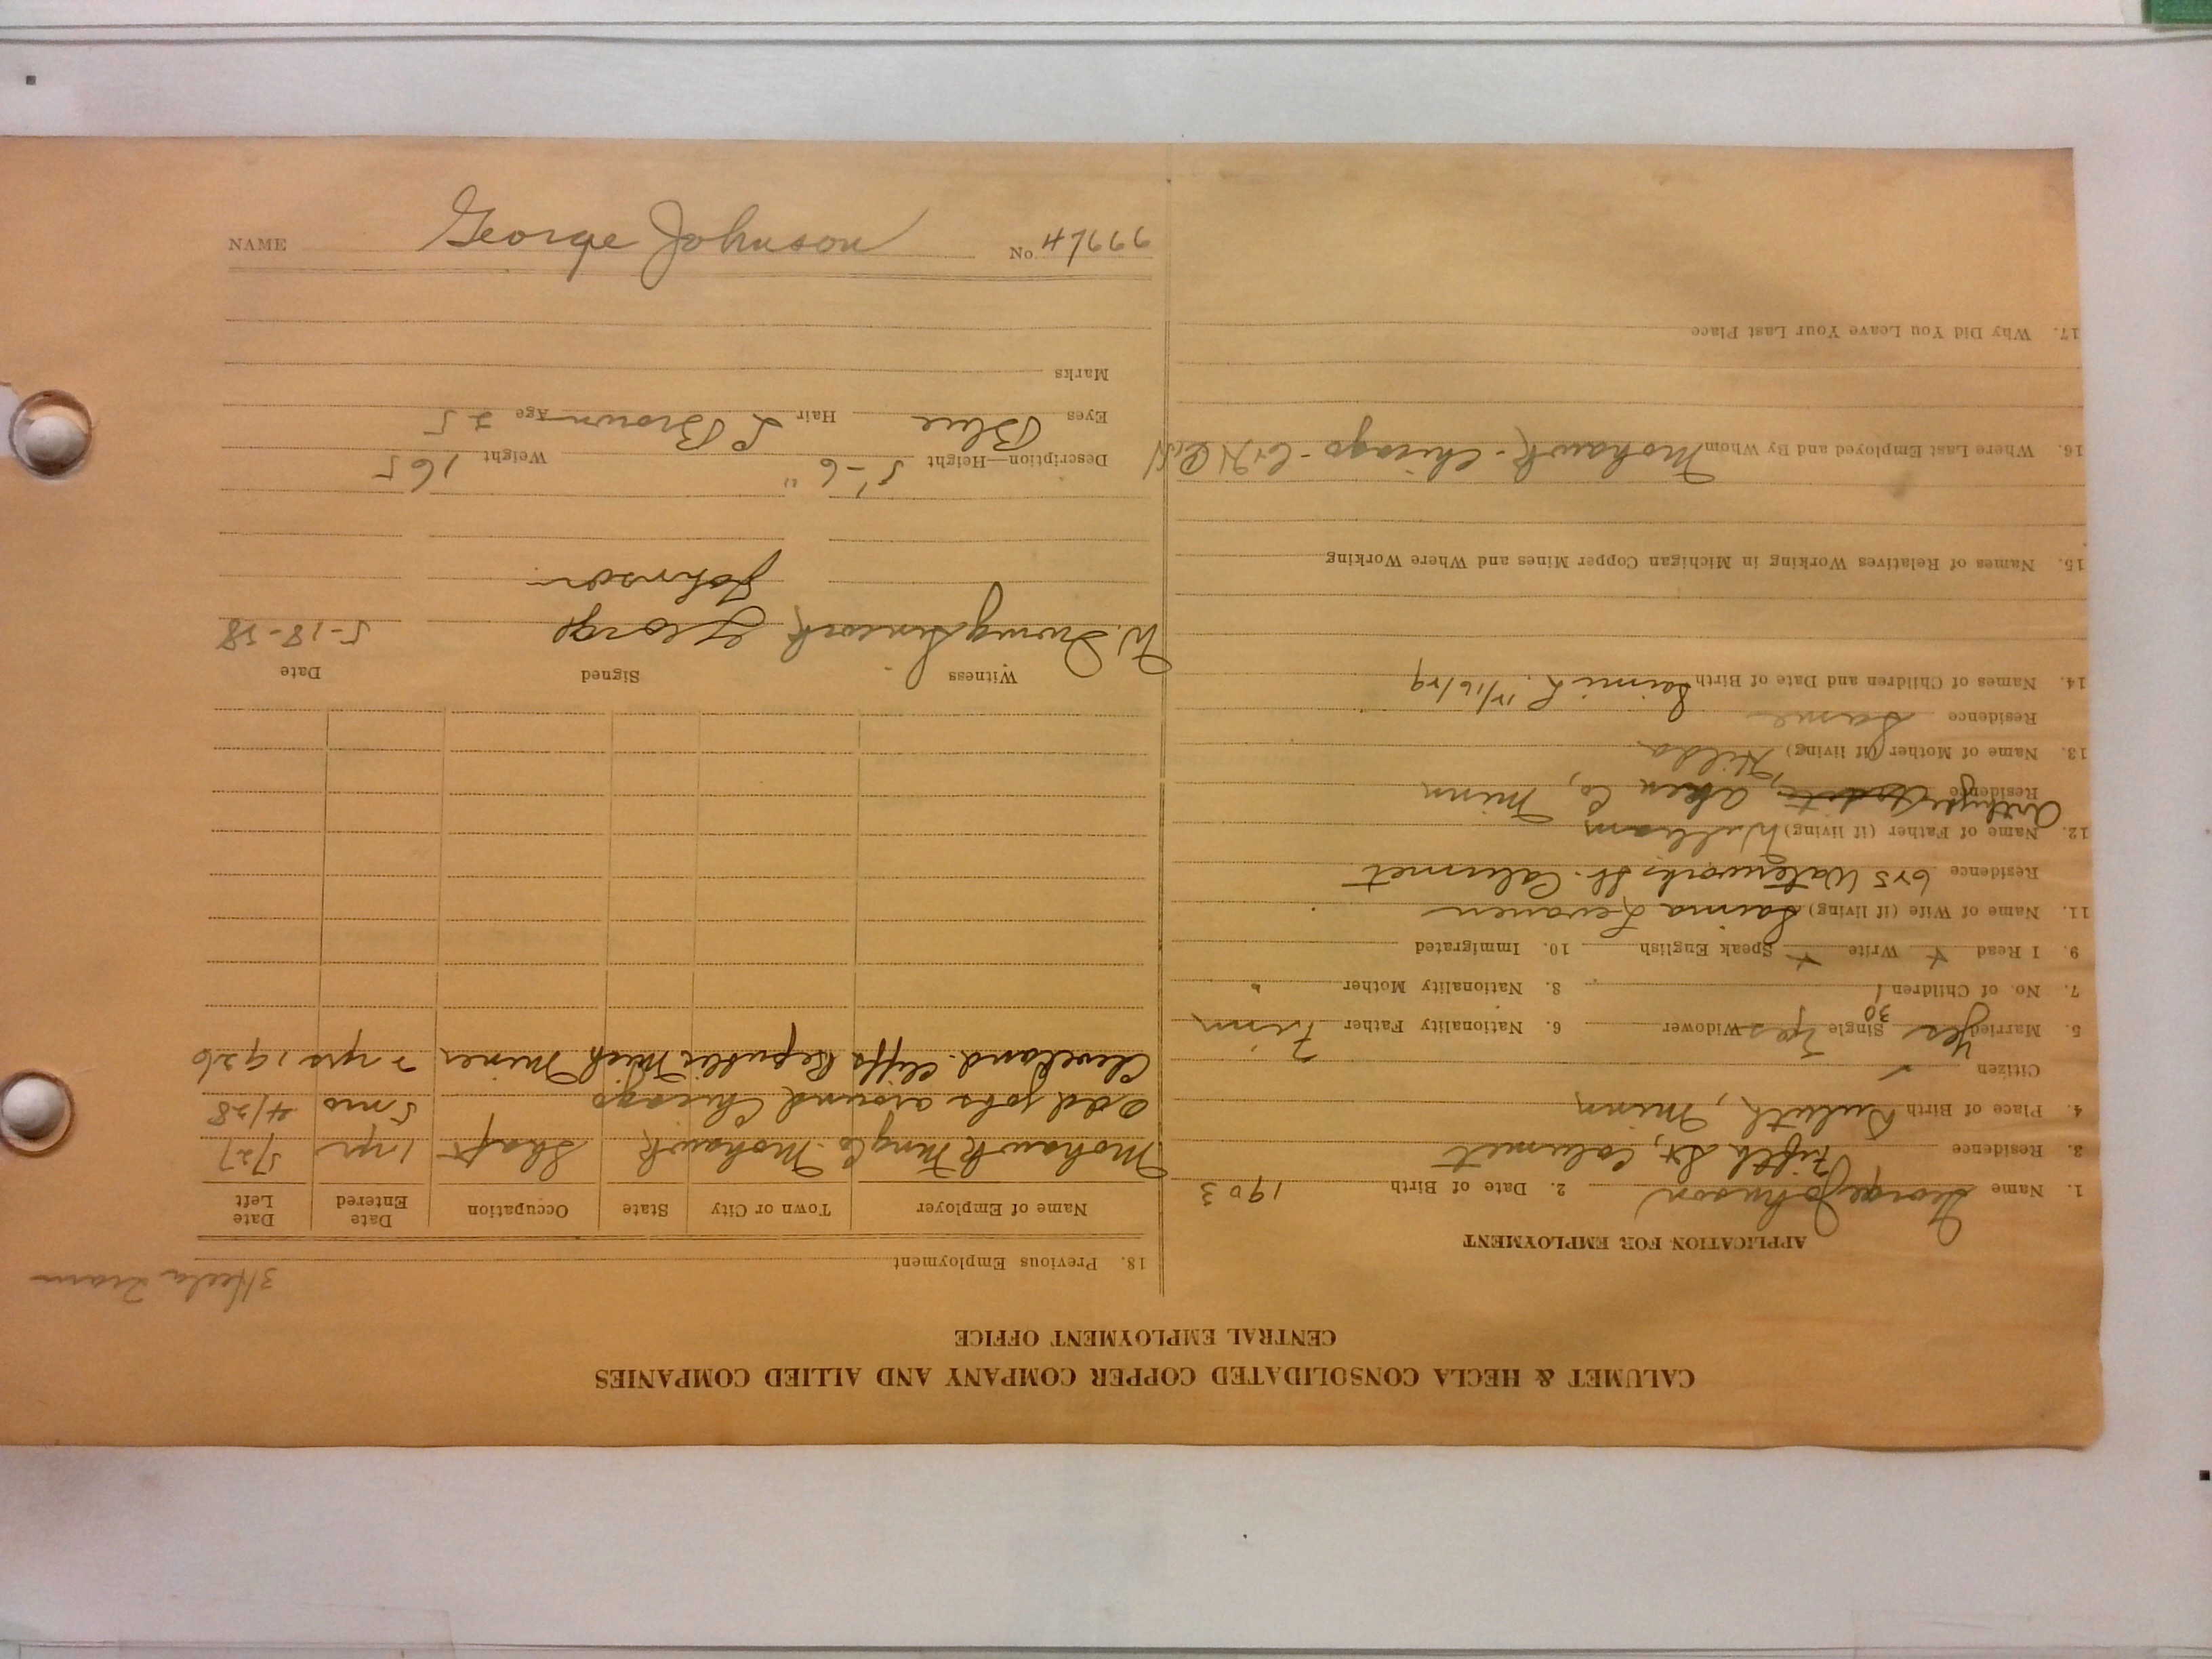 NAME George Johnson No.
CALUMET & HECLA CONSOLIDATED COPPER COMPANY AND ALLIED COMPANIES
CENTRAL EMPLOYMENT OFFICE
APPLICATION FOR EMPLOYMENT
1. Name George Johnson 2. Date of Birth 1903
3. Residence Fifth St, Calumet
4. Place of Birth Duluth, Minn
Citizen ✓
5. Married Yes 30 Single Yes Widower 6. Nationality Father Finn
7. No. of Children 1 8. Nationality Mother "
9. I Read + Write + Speak English 10. Immigrated
11. Name of Wife (if living) Saima Levanen
Residence 625 Waterworks St. Calumet
12. Name of Father (if living) William
Residence Co, Minn
13. Name of Mother (if living) Hilda
Residence Same
14. Names of Children and Date of Birth
15. Names of Relatives Working in Michigan Copper Mines and Where Working
16. Where Last Employed and By Whom Mohawk - Chicago - C&H
17. Why Did You Leave Your Last Place
3 Hecla Tram
18. Previous Employment
Name of Employer Town or City State Occupation Date Entered Date Left
Mohawk Mng Co. Mohawk Shaft 1 yr 5/27
Odd jobs around Chicago 5 mo 4/28
Cleveland Cliffs Republic Mich Miner 7 yrs 1926
Witness Signed Date
W. George Johnson
Description—Height 5'-6" Weight 165
Eyes Blue Hair L Brown Age 25
Marks